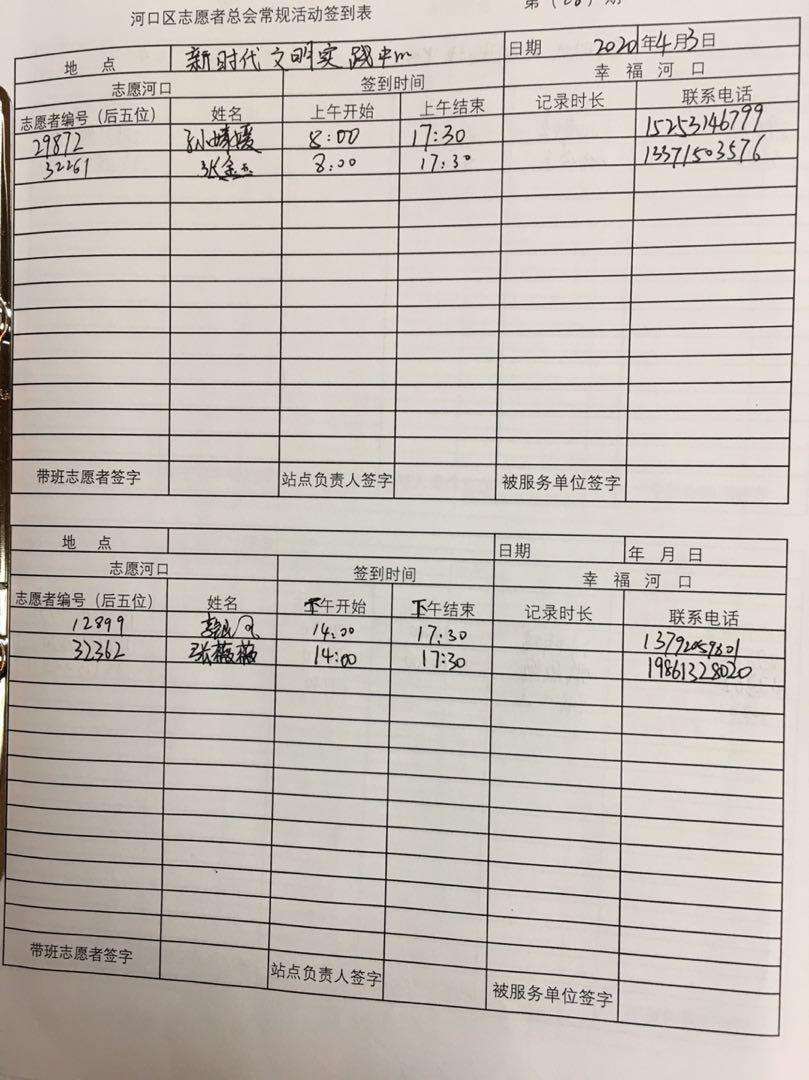 河口区志愿者总会常规活动签到表 第( )期
地 点 新时代文明实践中心 日期 2020年4月3日
志愿河口 签到时间 幸福河口
志愿者编号（后五位） 姓名 上午开始 上午结束 记录时长 联系电话
29872 8:00 17:30 15253146799
32261 8:00 17:30 13371503576
带班志愿者签字 站点负责人签字 被服务单位签字
地 点 日期 年 月 日
志愿河口 签到时间 幸福河口
志愿者编号（后五位） 姓名 下午开始 下午结束 记录时长 联系电话
12899 14:00 17:30
32362 张薇薇 14:00 17:30 19861328020
带班志愿者签字 站点负责人签字 被服务单位签字